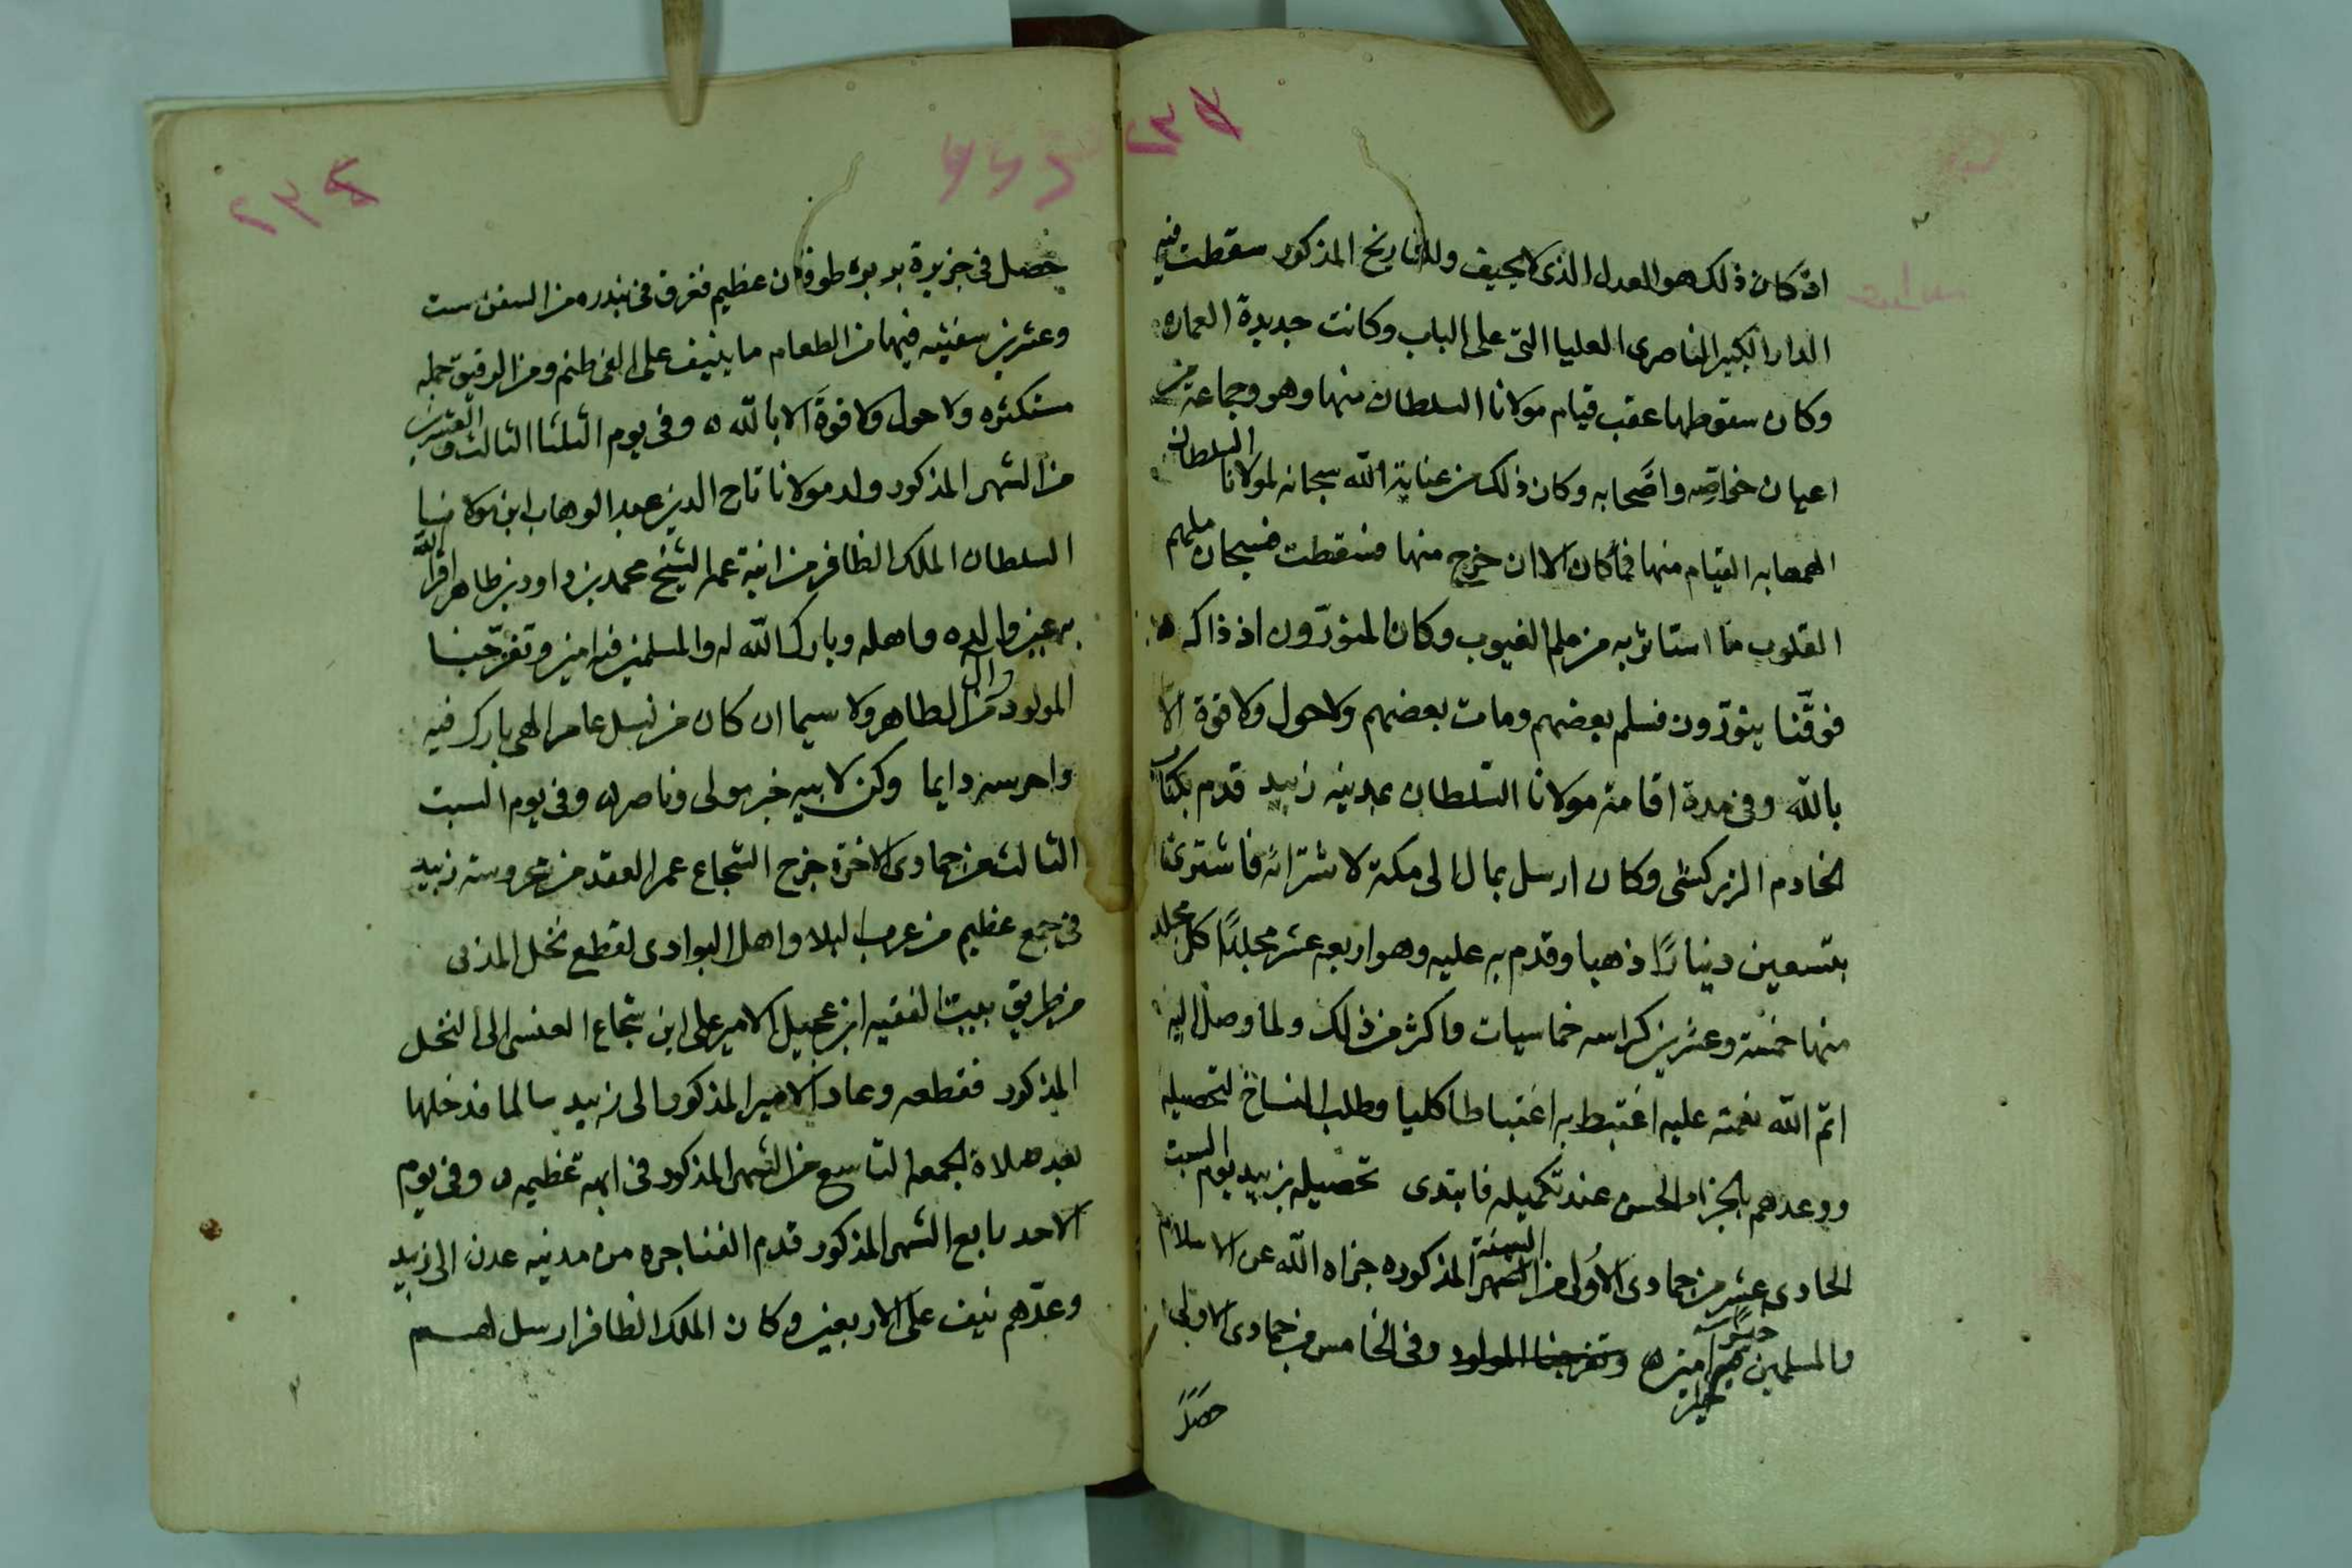 اذ كان ذلك هو العدل الذى لا يحيف وللتاريخ المذكور سقطت فيه
الدار الكبير الناصرى العليا التى على الباب وكانت جديدة العماره
وكان سقوطها عقب قيام مولانا السلطان منها وهو وجماعة من
اعيان خواصه واصحابه وكان ذلك من عناية الله سبحانه لمولانا السلطان
القيام منها فما كان الا ان خرج منها فسقطت فسبحان ملهم
القلوب ما استاثر به من علم الغيوب وكان المنورون اذ ذاك
فوقنا ينورون فسلم بعضهم ومات بعضهم ولا حول ولا قوة الا
بالله وفى مدة اقامة مولانا السلطان بمدينه زبيد قدم بكتاب
الخادم الزركشى وكان ارسل بمال الى مكة لاشترائه فاشترى
بتسعين دينارًا ذهبا وقدم به عليه وهو اربعه عشر مجلدًا كل مجلد
منها خمسة وعشرين كراسه خماسيات واكثر من ذلك ولما وصل اليه
اتم الله نعمته عليه اغتبط به اغتباطا كليا وطلب النساخ لتحصيله
ووعدهم بالجزاء الحسن عند تكميله فابتدى تحصيله بزبيد يوم السبت
الحادى عشر من جمادى الاولى من السنة المذكوره جزاه الله عن الاسلام
والمسلمين خيرا امين ه وتفرحنا المولود وفى الخامس من جمادى الاولى
حصل
حصل فى جزيرة بربره طوفان عظيم فغرق فى بندره من السفن ست
وعشرين سفينه فيها من الطعام ما ينيف على الفى طنم ومن الرقيق جمله
مستكثره ولا حول ولا قوة الا بالله ه وفى يوم الثلثا الثالث والعشرين
من الشهر المذكور ولد مولانا تاج الدين عبد الوهاب ابن مولانا
السلطان الملك الظافر من ابنة عمه الشيخ محمد بن داود بن طاهر اقر الله
به عين والده واهله وبارك الله له والمسلمين فيه امين وتفرحنا
المولود من ال الطاهر ولا سيما ان كان من نسل عامر الهى بارك فيه
واحرسه دايما وكن لابيه خير مولى وناصر ه وفى يوم السبت
الثالث من جمادى الاخرة خرج الشجاع عمر العقد من محروسة زبيد
فى جمع عظيم من عرب البلاد واهل البوادى لقطع نخل المدنى
من طريق بيت الفقيه ابن عجيل الامير على ابن شجاع العنسى الى النخل
المذكور فقطعه وعاد الامير المذكور الى زبيد سالما فدخلها
بعد صلاة الجمعه التاسع من الشهر المذكور فى ابهة عظيمه ه وفى يوم
الاحد رابع الشهر المذكور قدم الفناجره من مدينه عدن الى زبيد
وعدهم نيف على الاربعين وكان الملك الظافر ارسل لهم